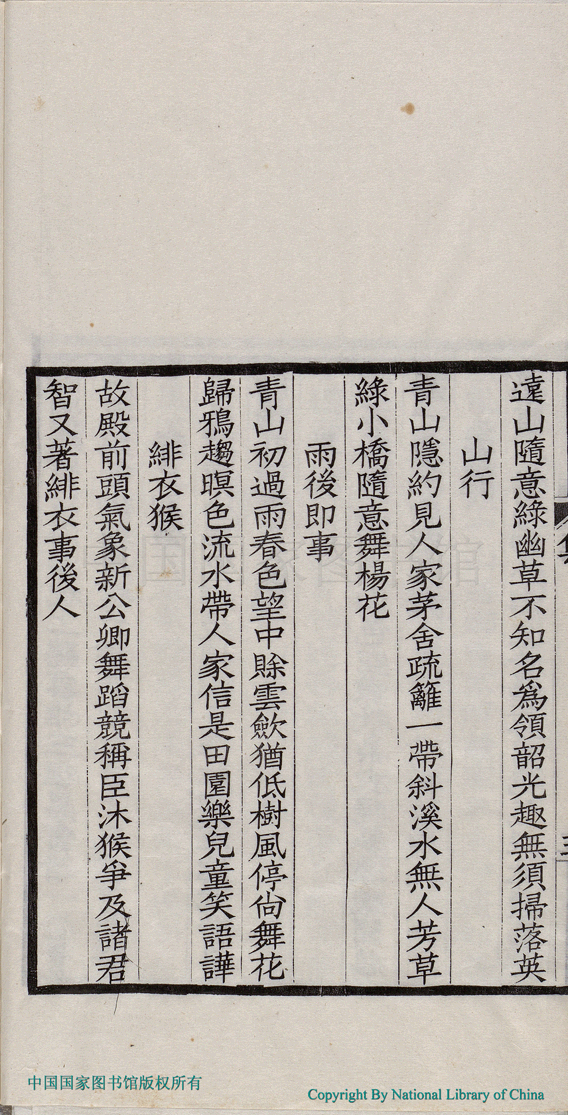 遠山隨意綠幽草不知名為領韶光趣無須掃落英
山行
青山隱約見人家茅舍疏籬一帶斜溪水無人芳草
綠小橋隨意舞楊花
雨後即事
青山初過雨春色望中賒雲歛猶低樹風停尙舞花
歸鴉趨暝色流水帶人家信是田園樂兒童笑語譁
緋衣猴
故殿前頭氣象新公卿舞蹈競稱臣沐猴爭及諸君
智又著緋衣事後人
中国国家图书馆版权所有
Copyright By National Library of China